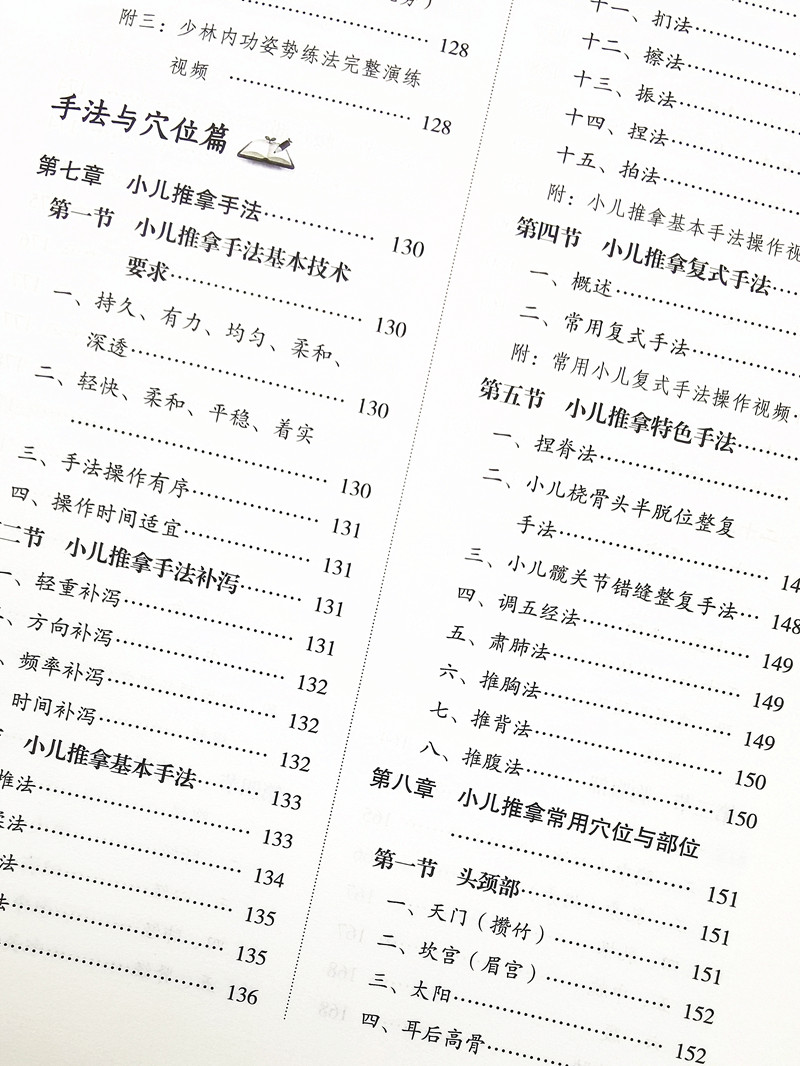 ……128
附三：少林内功姿势练法完整演练
视频 ……128
手法与穴位篇
第七章 小儿推拿手法……130
第一节 小儿推拿手法基本技术
要求……130
一、持久、有力、均匀、柔和、
深透……130
二、轻快、柔和、平稳、着实
……130
三、手法操作有序……131
四、操作时间适宜……131
二节 小儿推拿手法补泻……131
一、轻重补泻……131
、方向补泻……132
、频率补泻……132
时间补泻……132
小儿推拿基本手法……133
推法……133
法……134
法……135
法……135
……136
十一、扪法……
十二、擦法……
十三、振法……
十四、捏法……
十五、拍法……
附：小儿推拿基本手法操作视
第四节 小儿推拿复式手法……
一、概述……
二、常用复式手法……
附：常用小儿复式手法操作视频…
第五节 小儿推拿特色手法……
一、捏脊法……
二、小儿桡骨头半脱位整复
手法……14
三、小儿髋关节错缝整复手法…148
四、调五经法……149
五、肃肺法……149
六、推胸法……149
七、推背法……150
八、推腹法……150
第八章 小儿推拿常用穴位与部位
……151
第一节 头颈部……151
一、天门（攒竹）……151
二、坎宫（眉宫）……152
三、太阳……152
四、耳后高骨……